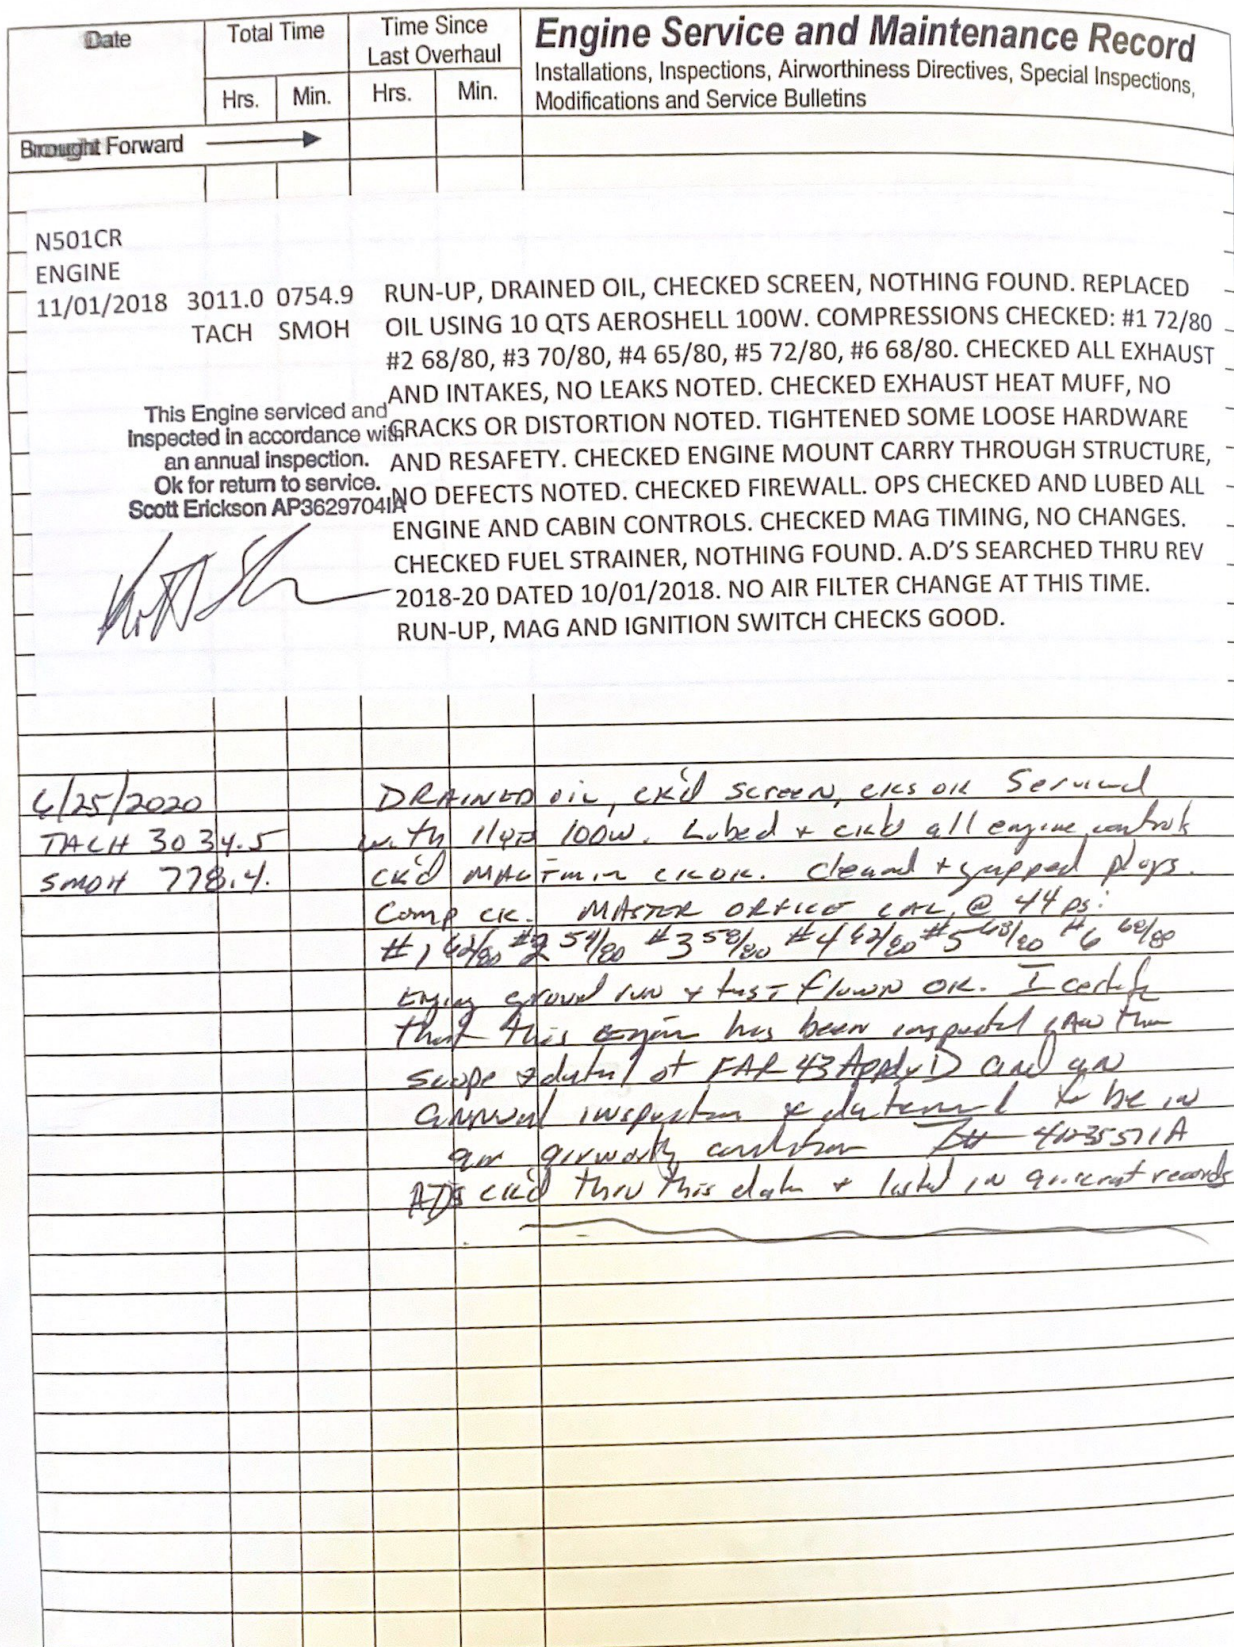 Date
Total Time
Time Since
Last Overhaul
Hrs. Min. Hrs. Min.
Engine Service and Maintenance Record
Installations, Inspections, Airworthiness Directives, Special Inspections,
Modifications and Service Bulletins
Brought Forward
N501CR
ENGINE
11/01/2018 3011.0 0754.9
TACH SMOH
RUN-UP, DRAINED OIL, CHECKED SCREEN, NOTHING FOUND. REPLACED
OIL USING 10 QTS AEROSHELL 100W. COMPRESSIONS CHECKED: #1 72/80
#2 68/80, #3 70/80, #4 65/80, #5 72/80, #6 68/80. CHECKED ALL EXHAUST
AND INTAKES, NO LEAKS NOTED. CHECKED EXHAUST HEAT MUFF, NO
CRACKS OR DISTORTION NOTED. TIGHTENED SOME LOOSE HARDWARE
AND RESAFETY. CHECKED ENGINE MOUNT CARRY THROUGH STRUCTURE,
NO DEFECTS NOTED. CHECKED FIREWALL. OPS CHECKED AND LUBED ALL
ENGINE AND CABIN CONTROLS. CHECKED MAG TIMING, NO CHANGES.
CHECKED FUEL STRAINER, NOTHING FOUND. A.D'S SEARCHED THRU REV
2018-20 DATED 10/01/2018. NO AIR FILTER CHANGE AT THIS TIME.
RUN-UP, MAG AND IGNITION SWITCH CHECKS GOOD.
This Engine serviced and
Inspected in accordance with
an annual inspection.
Ok for return to service.
Scott Erickson AP3629704IA
6/25/2020
TACH 3034.5
SMOH 778.4.
DRAINED oil, ck'd screen, cks ok Serviced
with 11qts 100w. Lubed + ck'd all engine controls
ck'd MAG Timin ck ok. Cleaned + gapped plugs.
Comp ck. MASTER ORFICE CAL @ 44 psi
#1 62/80 #2 54/80 #3 58/80 #4 62/80 #5 /80 #6 60/80
Engine ground run + test flown OK. I certify
that this engine has been inspected IAW the
scope + detail of FAR 43 App D and an
annual inspection + determined to be in
an airworthy condition IA
ADs ck'd thru this date + listed in aircraft records